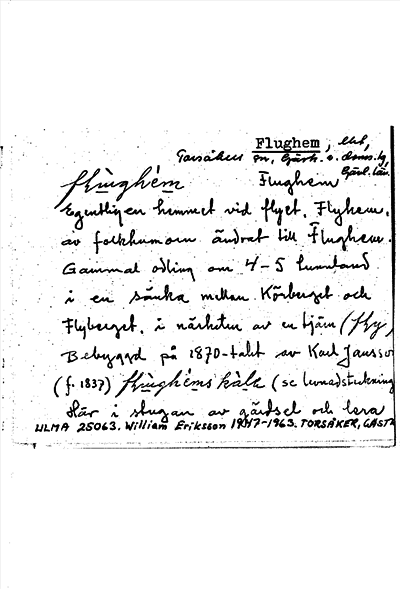 Flughem, ebt,
Torsåkers sn, Gästr. ö. doms.lg,
Gävl. län.
flùghém Flughem
Egentligen hemmet vid flyet, Flyhem,
av folkhumorn ändrat till Flughem.
Gammal odling om 4-5 tunnland
i en sänka mellan Körberget och
Flyberget, i närheten av en tjärn (fly)
Bebyggd på 1870-talet av Karl Jansson
(f. 1837) flùghéms kàlle (se levnadsteckning
Här i stugan av gärdsel och lera
ULMA 25063. William Eriksson 1947-1963. TORSÅKER, GÄSTR